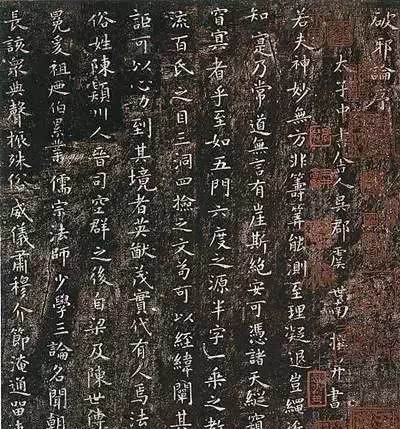 破邪論序
太子中書舍人吳郡虞世南撰并書
若夫神妙無方非籌筭能測至理凝邈豈繩
知寔乃常道無言有崖斯絕安可憑諸天縱窺
窅冥者乎至如五門六度之源半字一乘之教
流百氏之目三洞四撿之文苟可以經緯闡其
詎可以心力到其境者英猷茂實代有人焉法
俗姓陳潁川人晉司空群之後自梁及陳世傳
冕爰祖及伯累業儒宗法師少學三論名聞朝
長該眾典聲振殊俗威儀肅穆介節淹通留